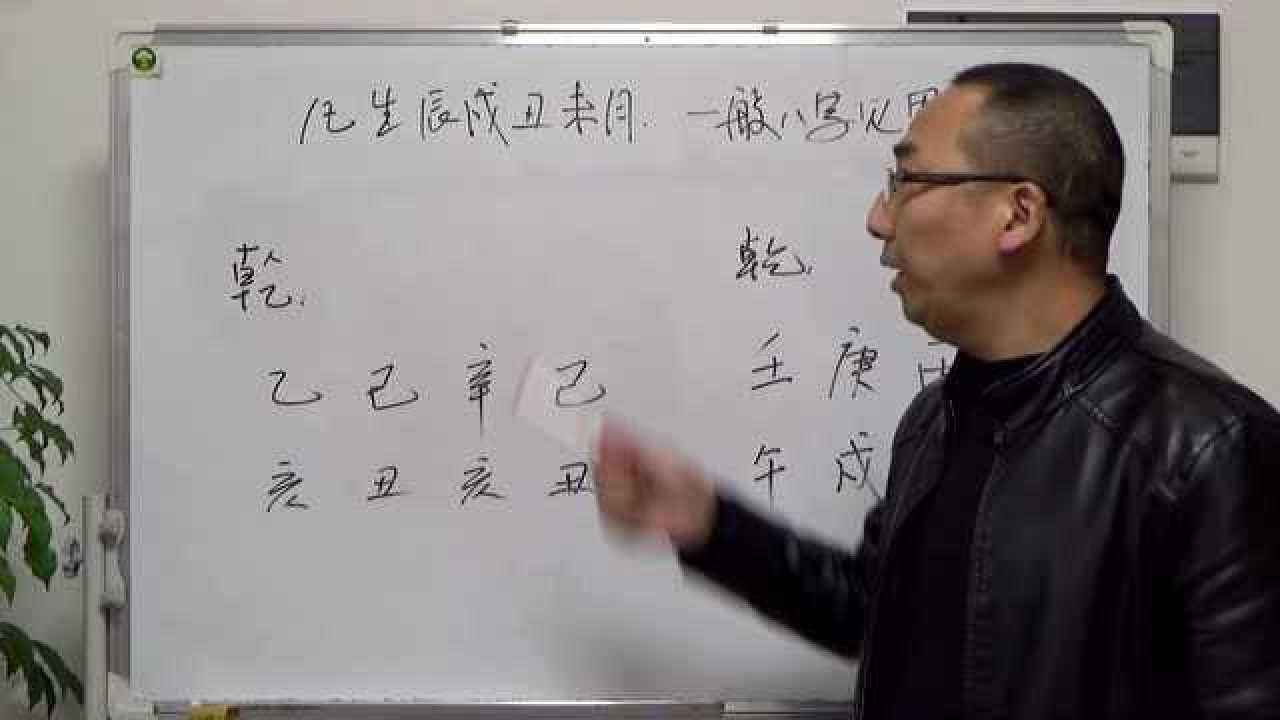 凡生辰戌丑未月. 一般八字必用
乾. 乾.
乙 己 辛 己 壬 庚
亥 丑 亥 丑 午 戌